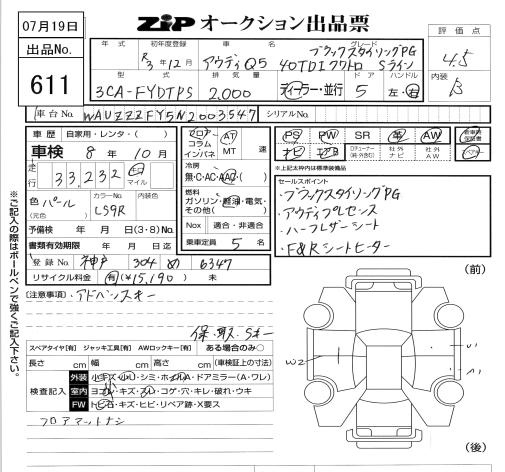 07月19日
出品No.
611
ZIP オークション出品票
評価点
4.5
内装
B
年式 初年度登録 車名 グレード
R3年12月 アウディQ5 ブラックスタイリングPG
40TDIクワトロ Sライン
型式 排気量 ドア ハンドル
3CA-FYDTPS 2,000 ディーラー・並行 5 左・右
車台No. WAUZZZFY5N2003547 シリアルNo.
車歴 自家用・レンタ・( )
車検 8年10月
走行 33,232 km マイル
色 パール (元色) カラーNo. LS9R 内装色
予備検 年 月 日(3・8)No.
書類有効期限 年 月 日迄
登録No. 神戸 304 め 6347
リサイクル料金 有(¥15,190) 未
フロア コラム インパネ AT MT 速
冷房
無・C・AC・AAC・( )
燃料
ガソリン・軽油・電気・その他( )
Nox 適合・非適合
乗車定員 5 名
PS PW SR 革 AW 新車時保証書
ナビ エアB 社外ナビ 社外AW
※上記太枠内は標準装備品
セールスポイント
・ブラックスタイリングPG
・アウディプレセンス
・ハーフレザーシート
・F&Rシートヒーター
(注意事項)・アドバンスキー
保・取・Sキー
スペアタイヤ[有] ジャッキ工具[有] AWロックキー[有] ある場合のみ○
長さ cm 幅 cm 高さ cm (車検証上の寸法)
検査記入
外装 小キズ・小凹・シミ・ホイルA・ドアミラー(A・ワレ)
室内 ヨゴレ・キズ・スレ・コゲ・穴・キレ・破れ・ウキ
FW トビ石・キズ・ヒビ・リペア跡・X要ス
フロアマットナシ
(前)
W2
(後)
※ご記入の際はボールペンで強くご記入下さい。